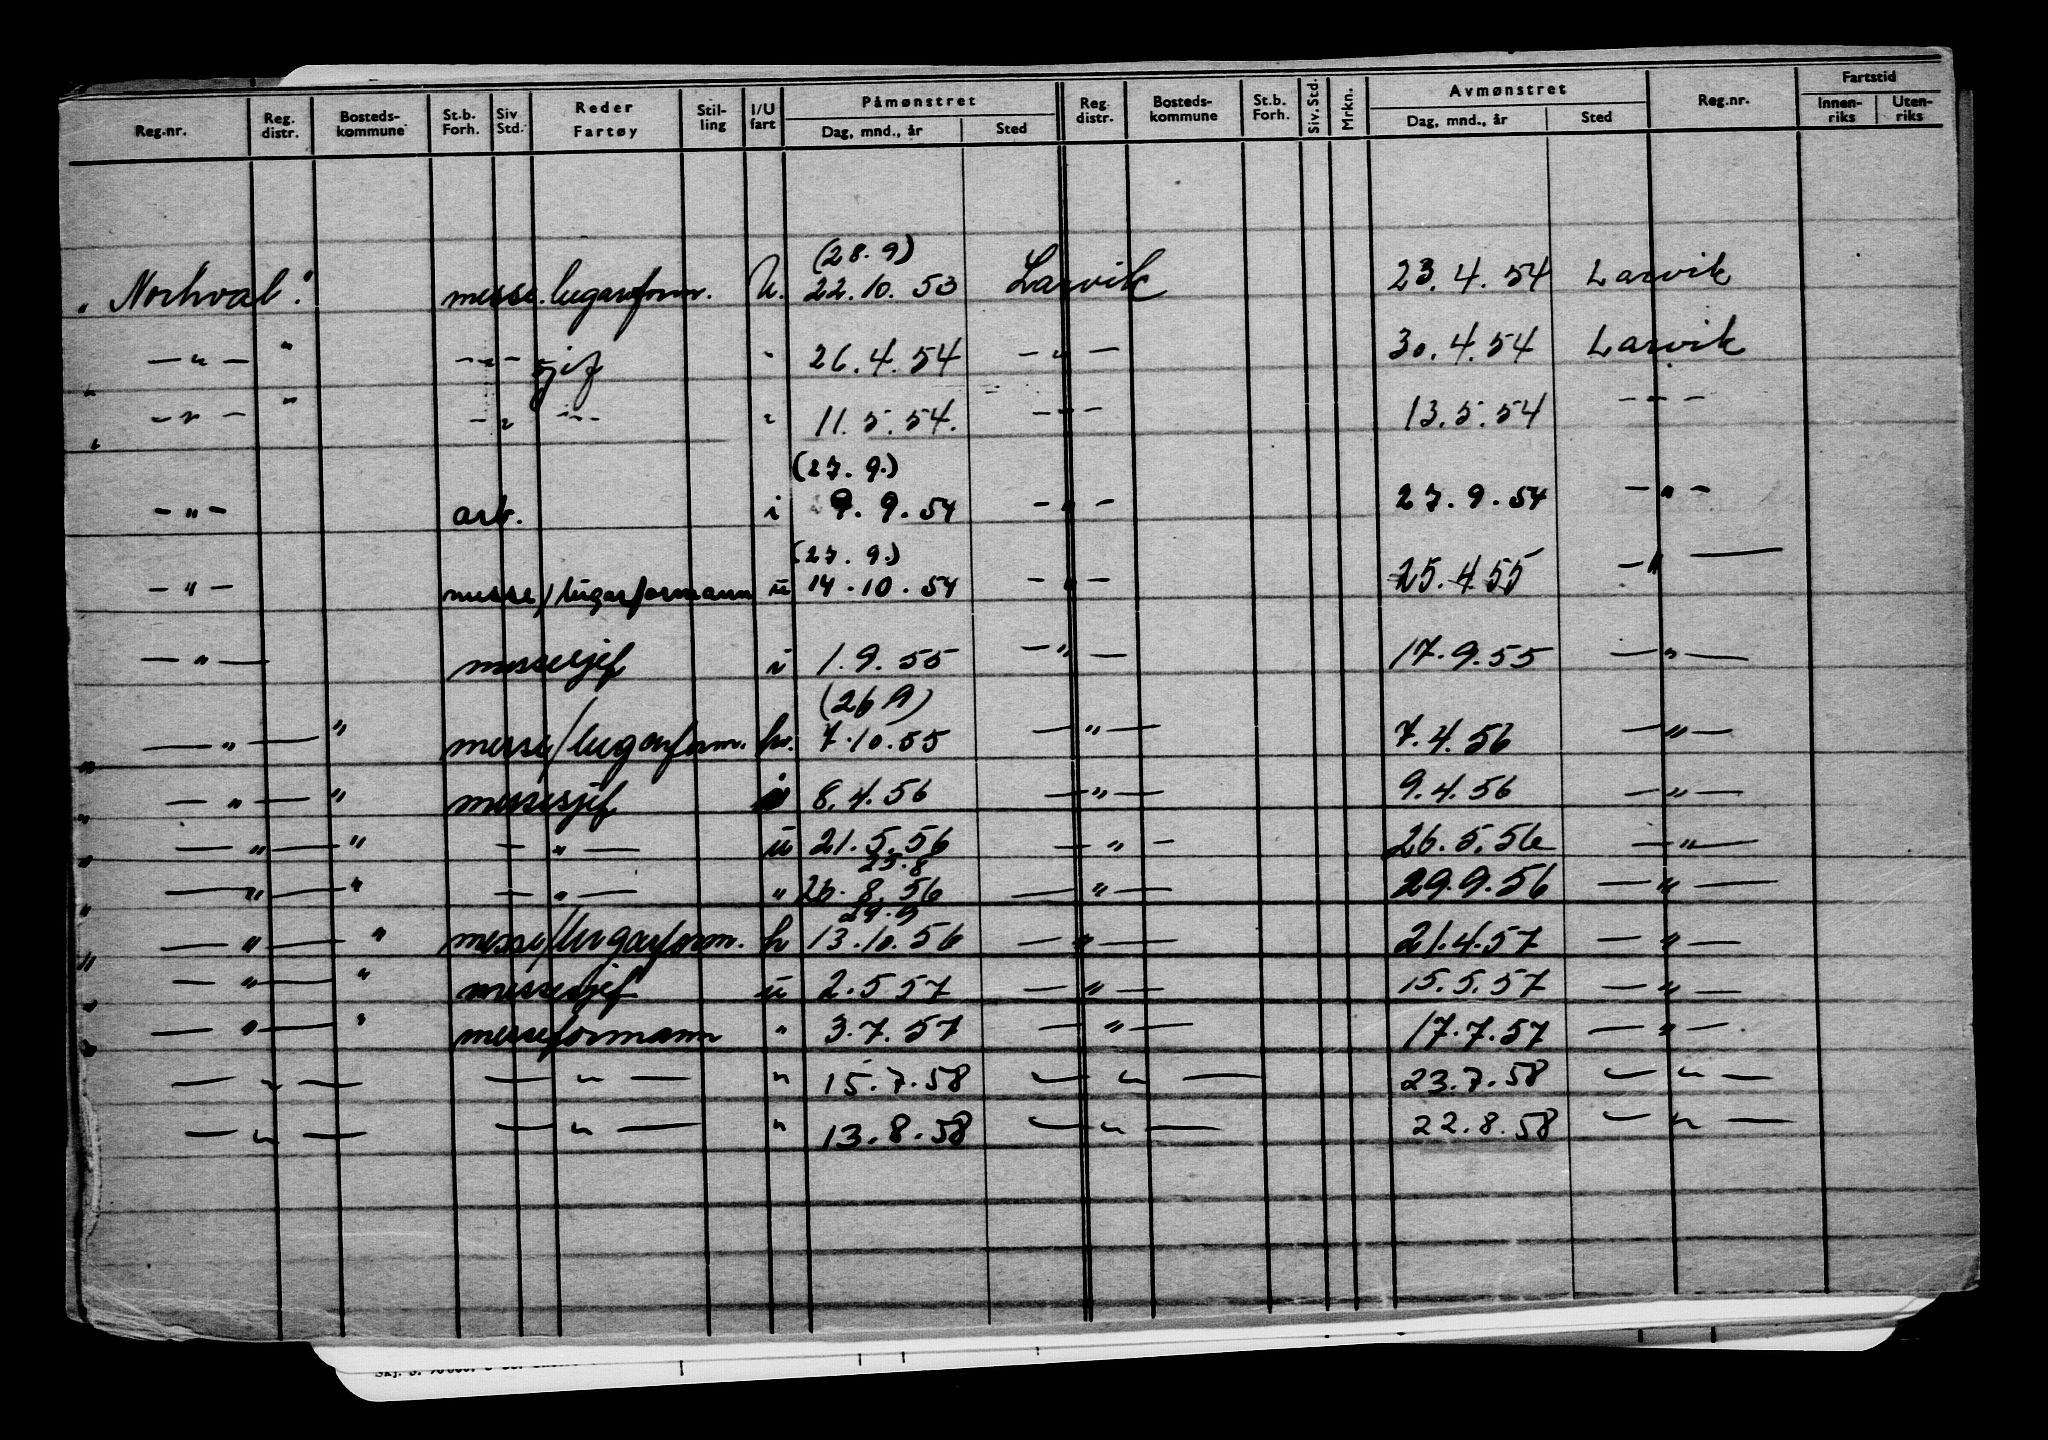 Reg.nr. Reg. distr. Bosteds-kommune St.b. Forh. Siv Std. Reder Fartøy Stil-ling I/U fart Påmønstret Dag, mnd., år Sted Reg. distr. Bosteds-kommune St.b. Forh. Siv. Std. Mrkn. Avmønstret Dag, mnd., år Sted Reg.nr. Fartstid Innen-riks Uten-riks
(28.9)
"Norhval". messe.lugarform. 22.10.53 Larvik 23.4.54 Larvik
— " — " — " — sjef " 26.4.54 — " — 30.4.54 Larvik
— " — " — " — — " — " 11.5.54. — " — 13.5.54 — " —
(27.9.)
— " — arb. i 9.9.54 — " — 27.9.54 — " —
(27.9.)
— " — messe/lugarformann u 14.10.54 — " — 25.4.55 — " —
— " — messesjef u 1.9.55 — " — 17.9.55 — " —
(26.9)
— " — " messe/lugarform. hv. 7.10.55 — " — 7.4.56 — " —
— " — " messesjef 8.4.56 — " — 9.4.56 — " —
— " — " — " — u 21.5.56 — " — 26.5.56 — " —
25.8
— " — " — " — " 26.8.56 — " — 29.9.56 — " —
29.9
— " — " messe/lugarform. h 13.10.56 — " — 21.4.57 — " —
— " — " messesjef u 2.5.57 — " — 15.5.57 — " —
— " — " messeformann " 3.7.57 — " — 17.7.57 — " —
— " — — " — " 15.7.58 — " — 23.7.58 — " —
— " — — " — " 13.8.58 — " — 22.8.58 — " —